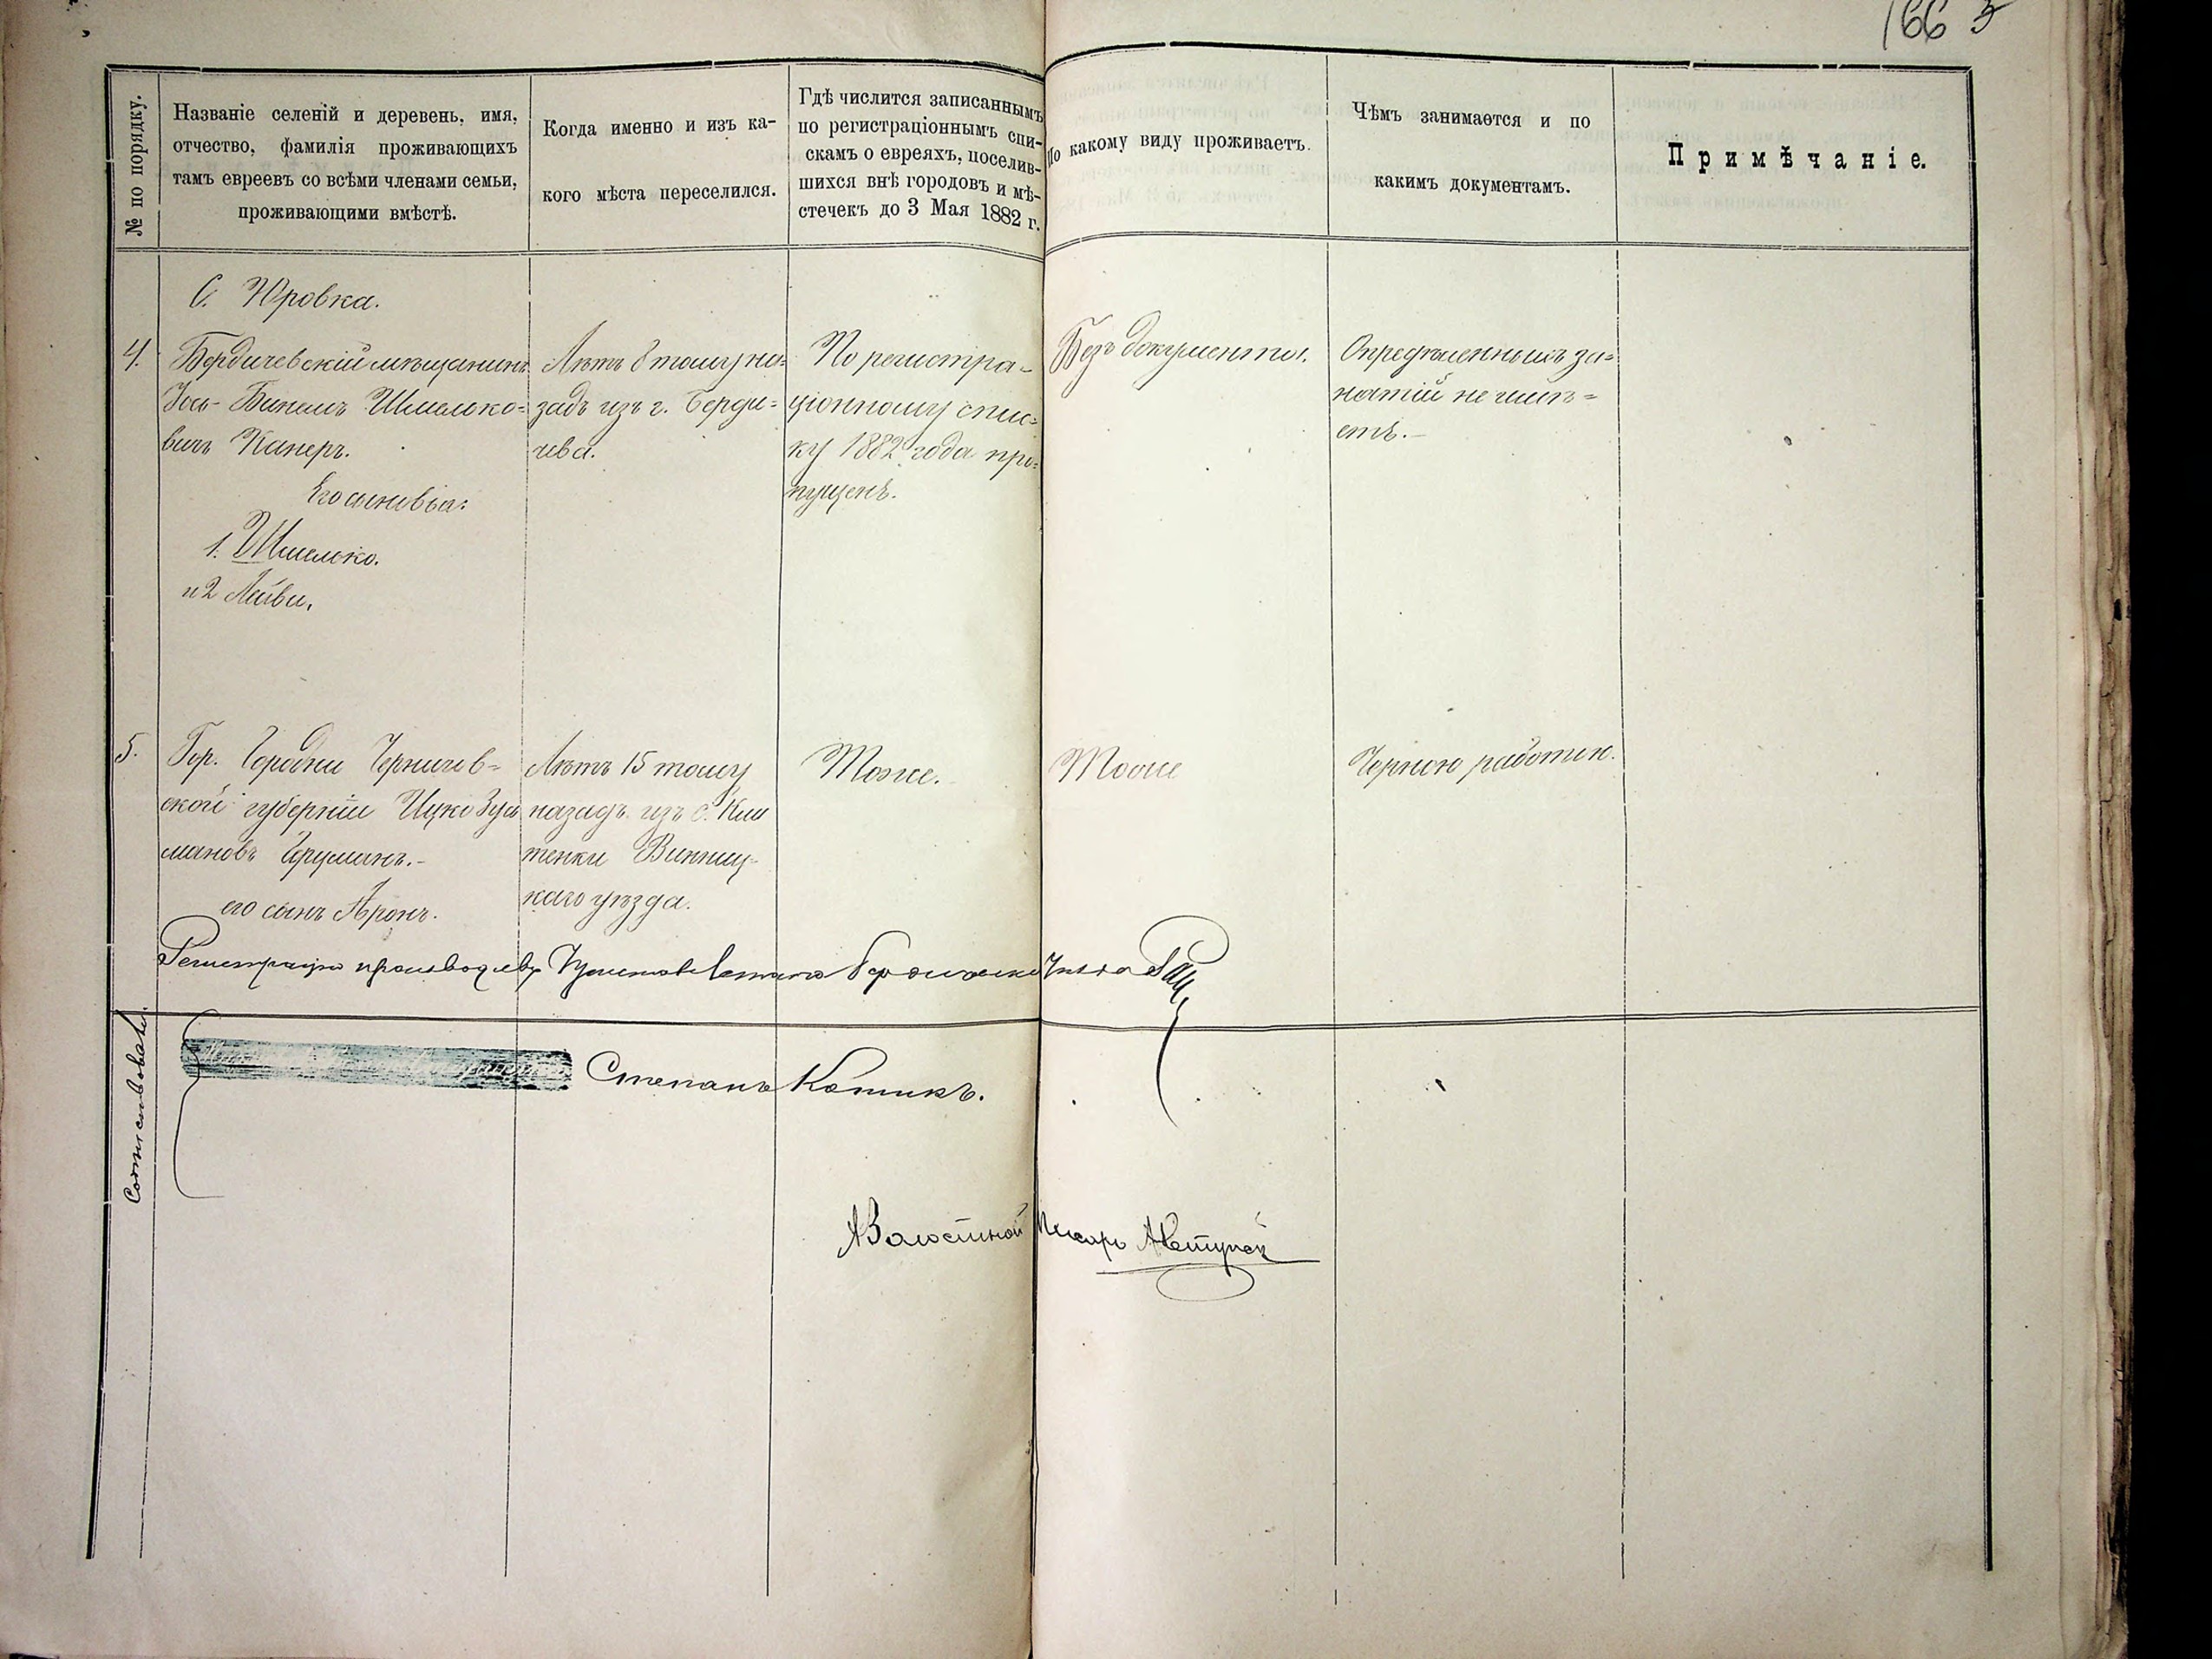 166
№ по порядку.
Названіе селеній и деревень, имя,
отчество, фамилія проживающихъ
тамъ евреевъ со всѣми членами семьи,
проживающими вмѣстѣ.
Когда именно и изъ ка-
кого мѣста переселился.
Гдѣ числится записаннымъ
по регистраціоннымъ спи-
скамъ о евреяхъ, поселив-
шихся внѣ городовъ и мѣ-
стечекъ до 3 Мая 1882 г.
По какому виду проживаетъ.
Чѣмъ занимается и по
какимъ документамъ.
Примѣчаніе.
С. Юровка.
4.
Бердичевскій мѣщанинъ
Іось- Шмелько=
вичъ Канеръ.
Его сыновья:
1. Шмелько.
и 2 Лейви.
Лѣтъ 8 тому на=
задъ изъ г. Берди=
чева.
По регистра=
ціонному спис=
ку 1882 года про=
пущенъ.
Безъ документа.
Опредѣленныхъ за=
нятій не имѣ=
етъ.-
5.
Гор. Городни Чернигов=
ской губерніи Ицко Зусь
мановъ.-
его сынъ Аронъ.
Лѣтъ 15 тому
назадъ изъ с.
тенки Винниц-
каго уѣзда.
Тоже.
Тоже
Черною работою.
Регистрацію производилъ
Степанъ Котикъ.
Волостной Писарь